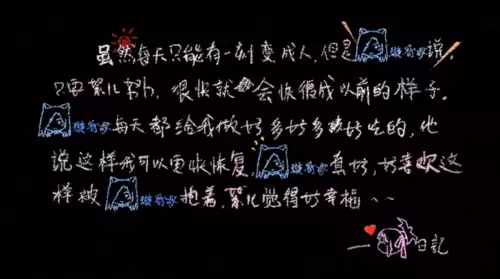 虽然每天只能有一刻变成人，但是璇哥哥说，
只要絮儿努力，很快就会恢復成以前的样子。
璇哥哥每天都给我做好多好多好吃的，他
说这样我可以更快恢复，璇哥哥真好，好喜欢这
样被璇哥哥抱着，絮儿觉得好幸福~~
—日記